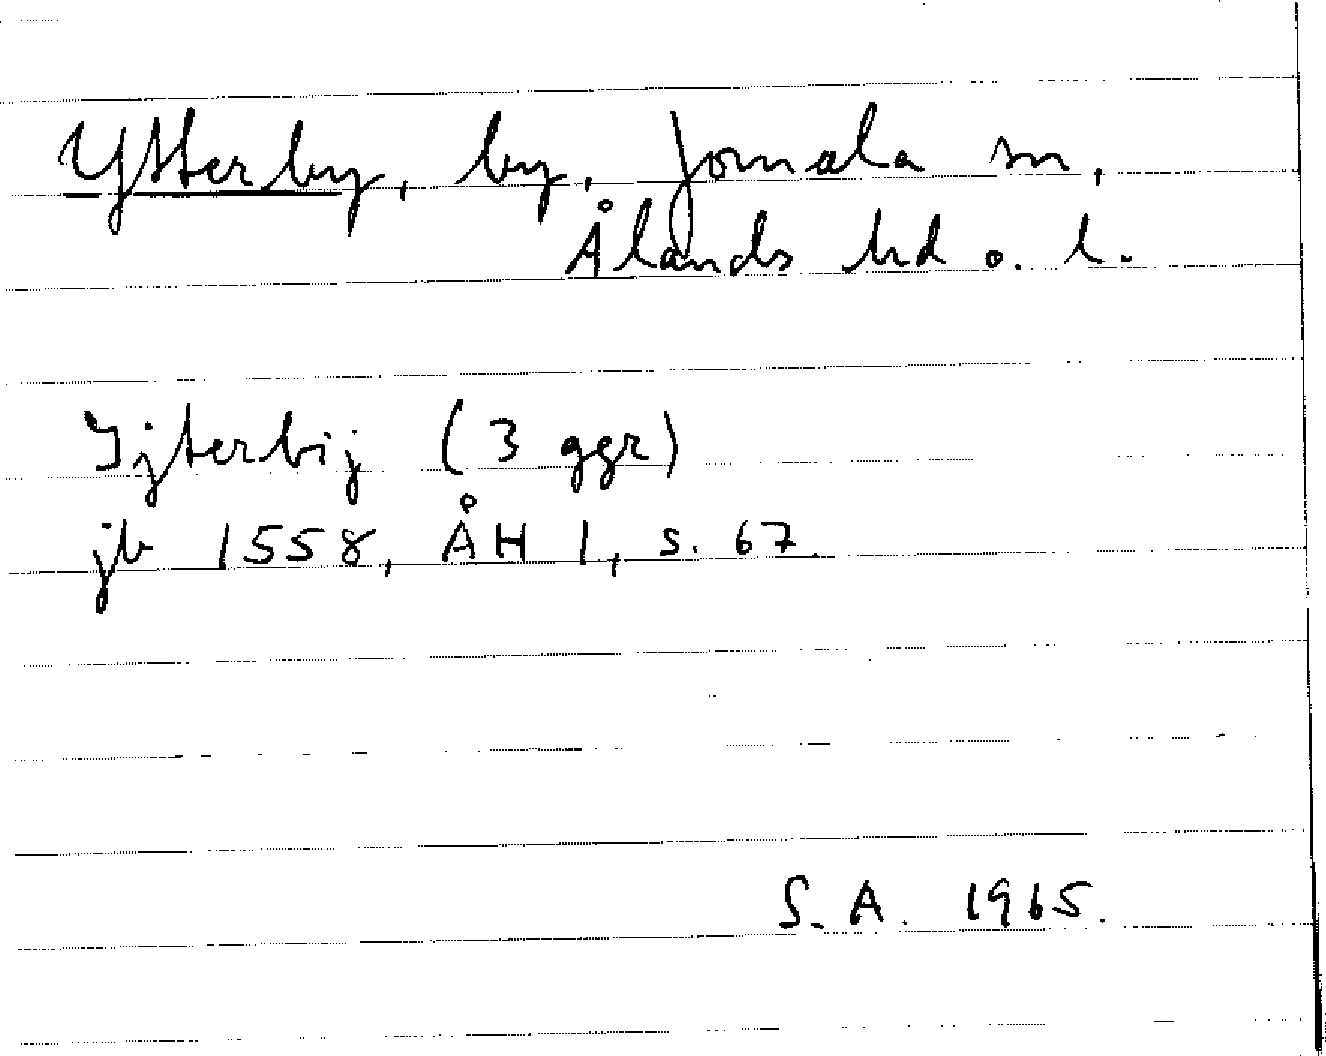 Ytterby, by, Jomala sn,
Ålands hd o. l.
Ijterbij (3 ggr)
jb 1558, ÅH I, s. 67
S. A. 1965.